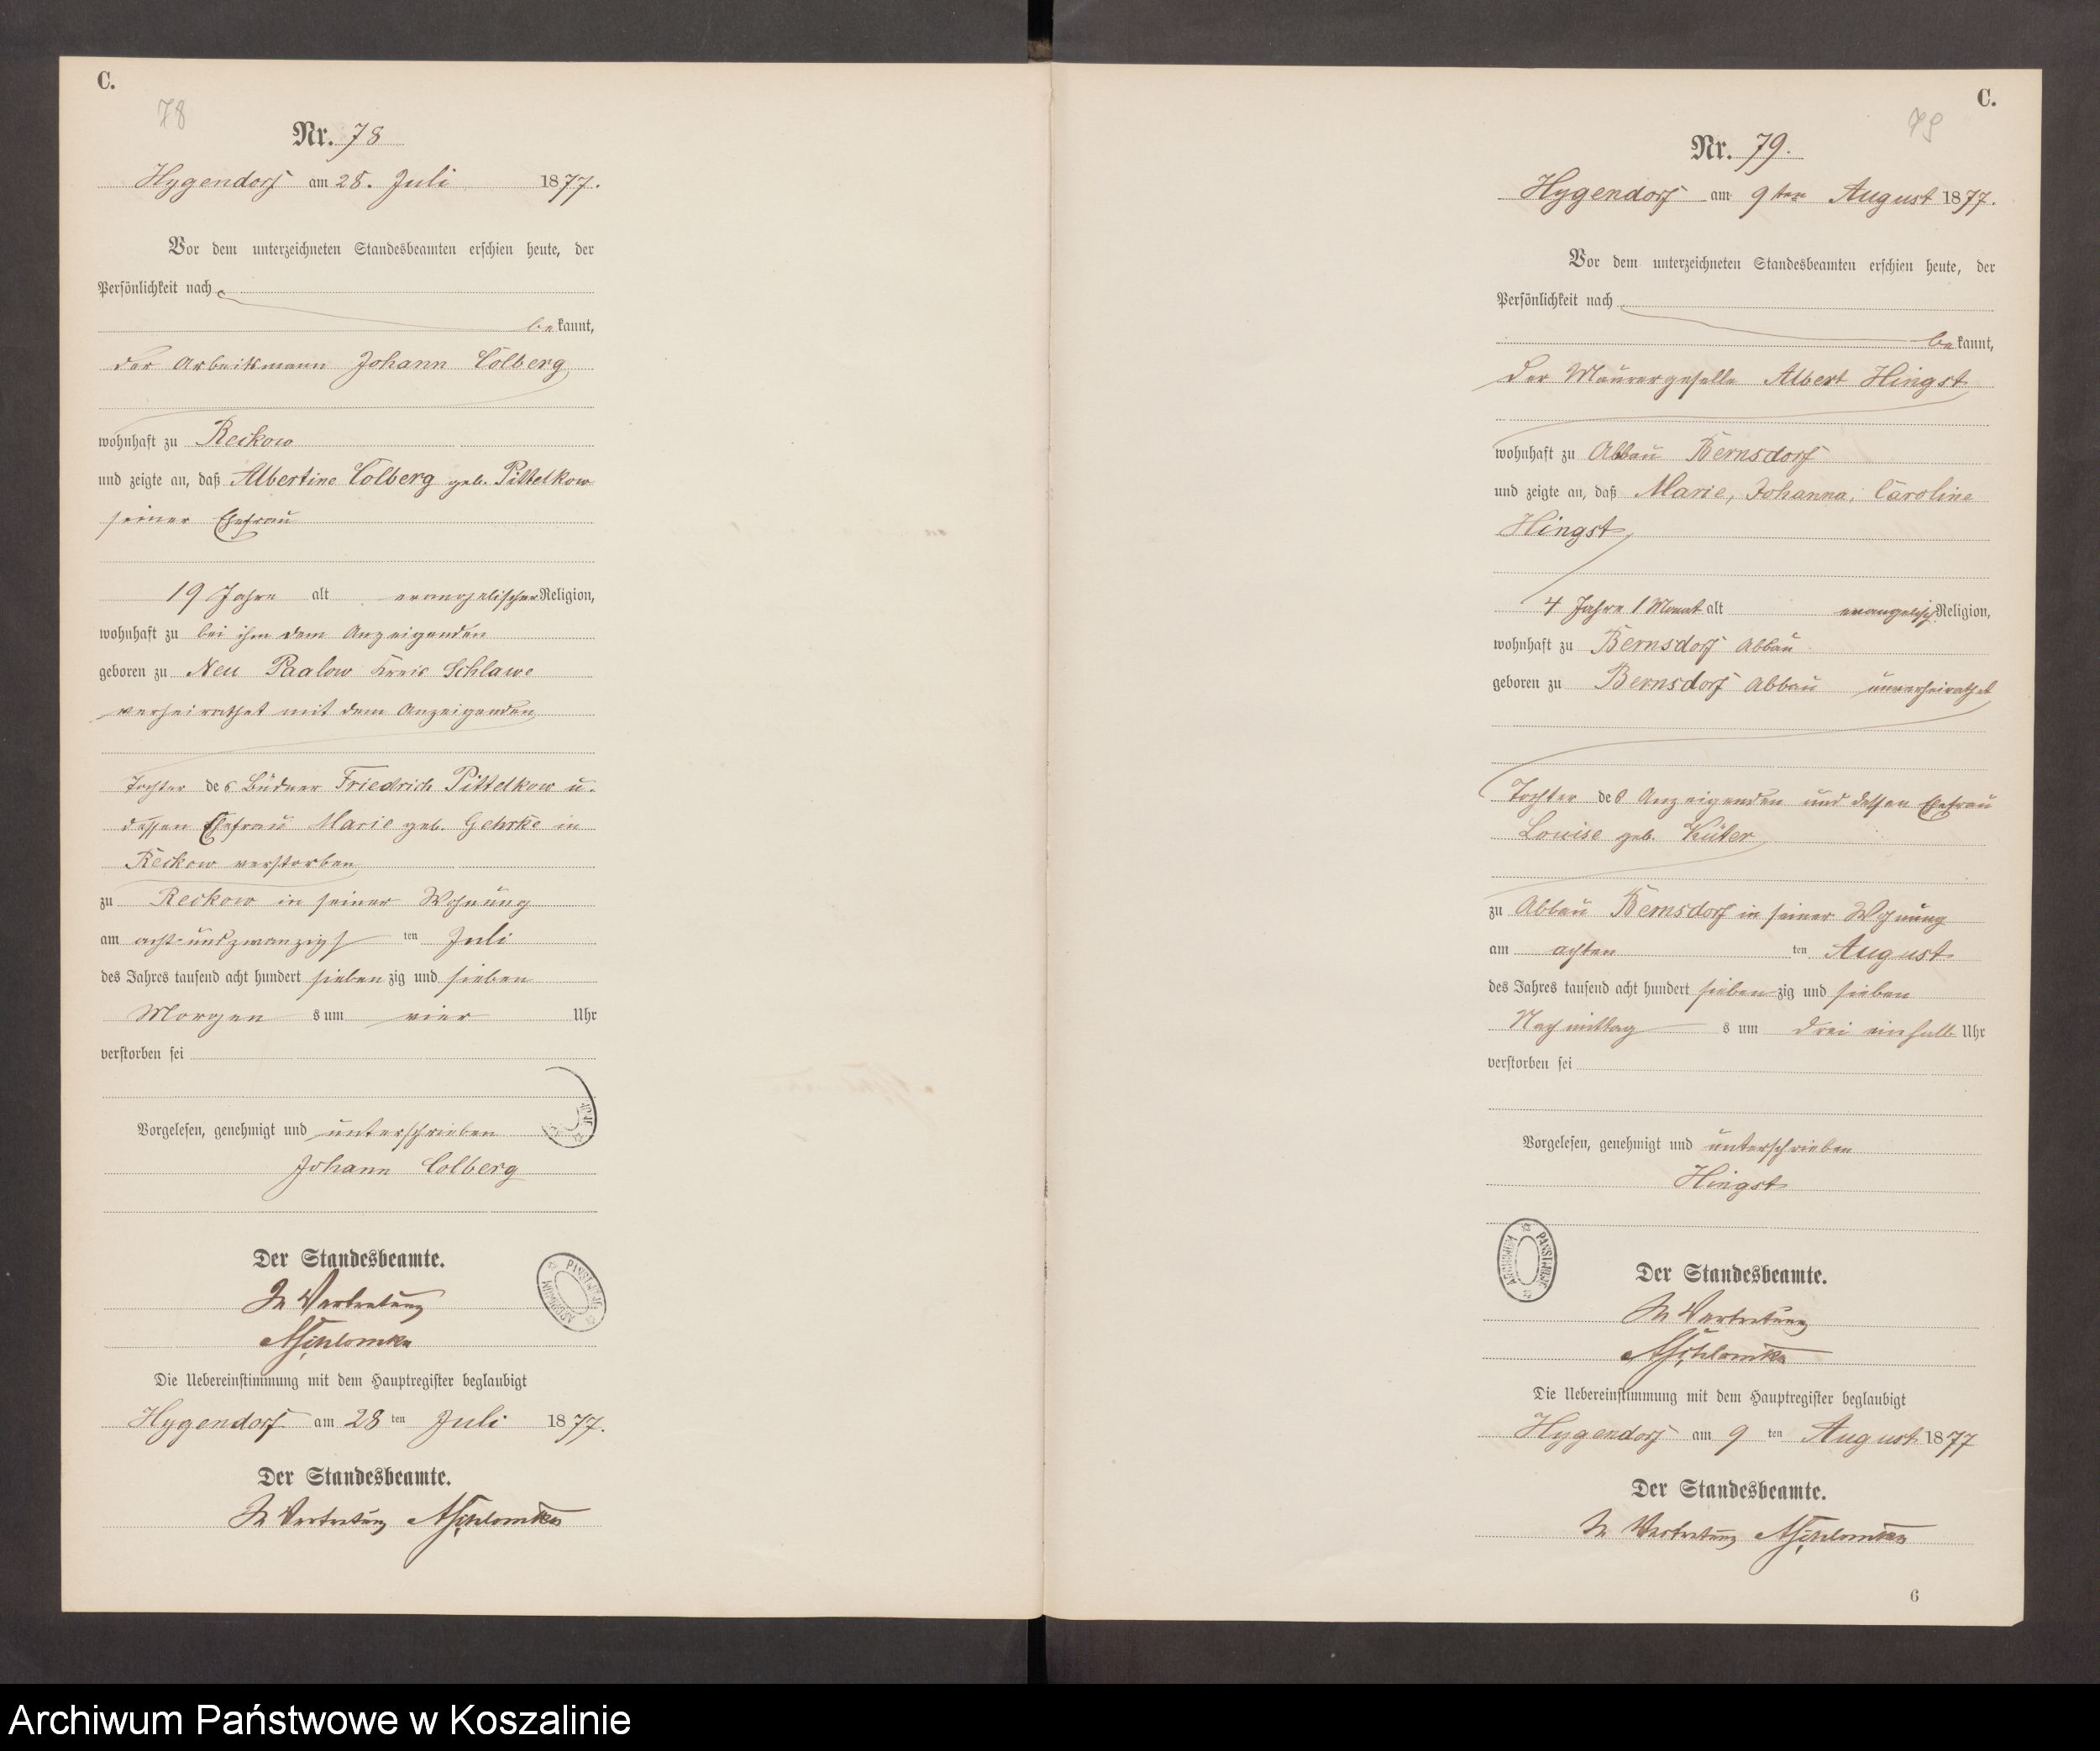 C.
78
Nr. 78
Hygendorf am 28. Juli 1877.
Vor dem unterzeichneten Standesbeamten erschien heute, der
Persönlichkeit nach
bekannt,
der Arbeitsmann Johann Colberg
wohnhaft zu Reckow
und zeigte an, daß Albertine Colberg geb. Pittelkow
seiner Ehefrau
19 Jahre alt evangelischer Religion,
wohnhaft zu bei ihm dem Anzeigenden
geboren zu Neu Paalow Kreis Schlawe
verheirathet mit dem Anzeigenden
Tochter des Büdner Friedrich Pittelkow u.
dessen Ehefrau Marie geb. Gehrke in
Reckow verstorben
zu Reckow in seiner Wohnung
am acht und zwanzigs ten Juli
des Jahres tausend acht hundert sieben zig und sieben
Morgen s um vier Uhr
verstorben sei
Vorgelesen, genehmigt und unterschrieben
Johann Colberg
Der Standesbeamte.
In Vertretung
ASchlomka
ARCHIWUM PAŃSTWOWE
Die Uebereinstimmung mit dem Hauptregister beglaubigt
Hygendorf am 28 ten Juli 1877.
Der Standesbeamte.
In Vertretung ASchlomka
C.
79
Nr. 79.
Hygendorf am 9ten August 1877.
Vor dem unterzeichneten Standesbeamten erschien heute, der
Persönlichkeit nach
bekannt,
der Maurergeselle Albert Hingst
wohnhaft zu Abbau Bernsdorf
und zeigte an, daß Marie, Johanna, Caroline
Hingst
4 Jahre 1 Monat alt evangelisch. Religion,
wohnhaft zu Bernsdorf Abbau
geboren zu Bernsdorf Abbau unverheirathet
Tochter des Anzeigenden und dessen Ehefrau
Louise geb. Küter
zu Abbau Bernsdorf in seiner Wohnung
am achten ten August
des Jahres tausend acht hundert sieben zig und sieben
Nachmittag s um drei einhalb Uhr
verstorben sei
Vorgelesen, genehmigt und unterschrieben
Hingst
ARCHIWUM PAŃSTWOWE
Der Standesbeamte.
In Vertretung
ASchlomka
Die Uebereinstimmung mit dem Hauptregister beglaubigt
Hygendorf am 9 ten August 1877
Der Standesbeamte.
In Vertretung ASchlomka
6
Archiwum Państwowe w Koszalinie